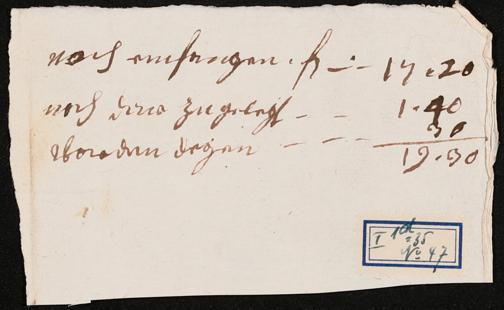 noch empfangen f - 17.20
noch darzu zugelegt - - 1.40
vor den degen - - - 30
19.30
I 1d
=35
No 47